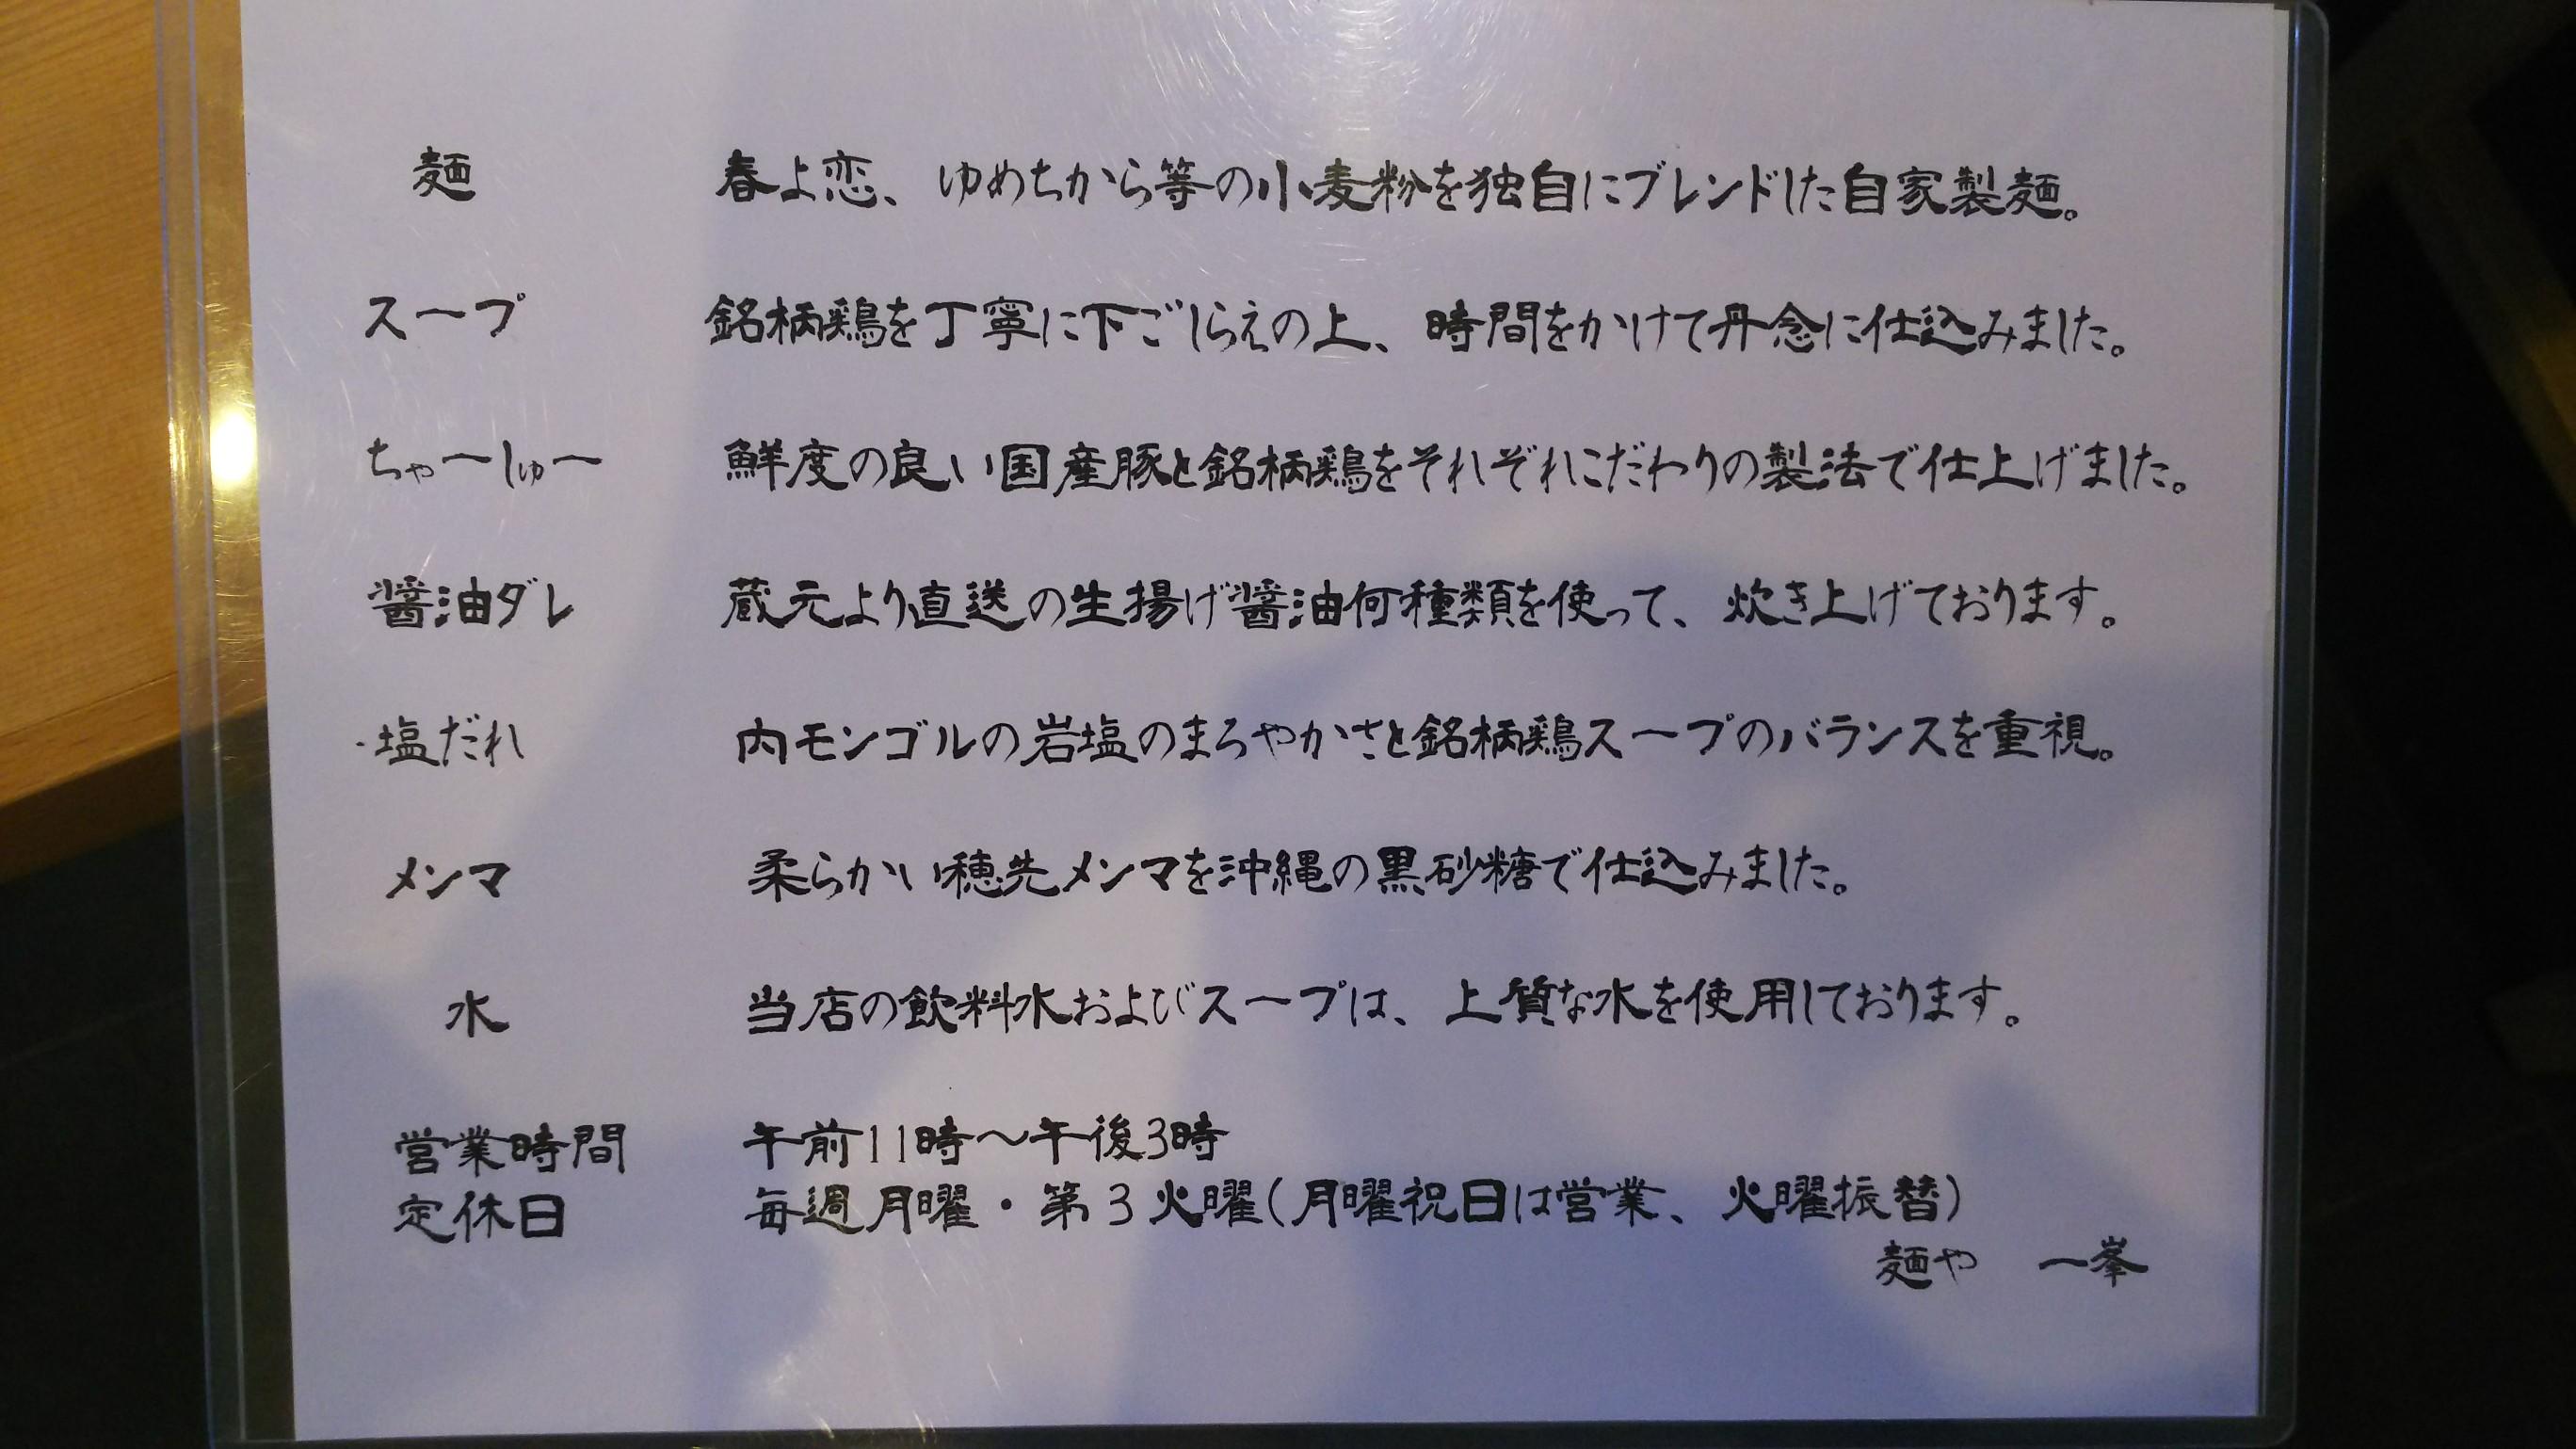 麺 春よ恋、ゆめちから等の小麦粉を独自にブレンドした自家製麺。
スープ 銘柄鶏を丁寧に下ごしらえの上、時間をかけて丹念に仕込みました。
ちゃーしゅー 鮮度の良い国産豚と銘柄鶏をそれぞれこだわりの製法で仕上げました。
醤油ダレ 蔵元より直送の生揚げ醤油何種類を使って、炊き上げております。
塩だれ 内モンゴルの岩塩のまろやかさと銘柄鶏スープのバランスを重視。
メンマ 柔らかい穂先メンマを沖縄の黒砂糖で仕込みました。
水 当店の飲料水およびスープは、上質な水を使用しております。
営業時間 午前11時〜午後3時
定休日 毎週月曜・第3火曜(月曜祝日は営業、火曜振替)
麺や 一峯